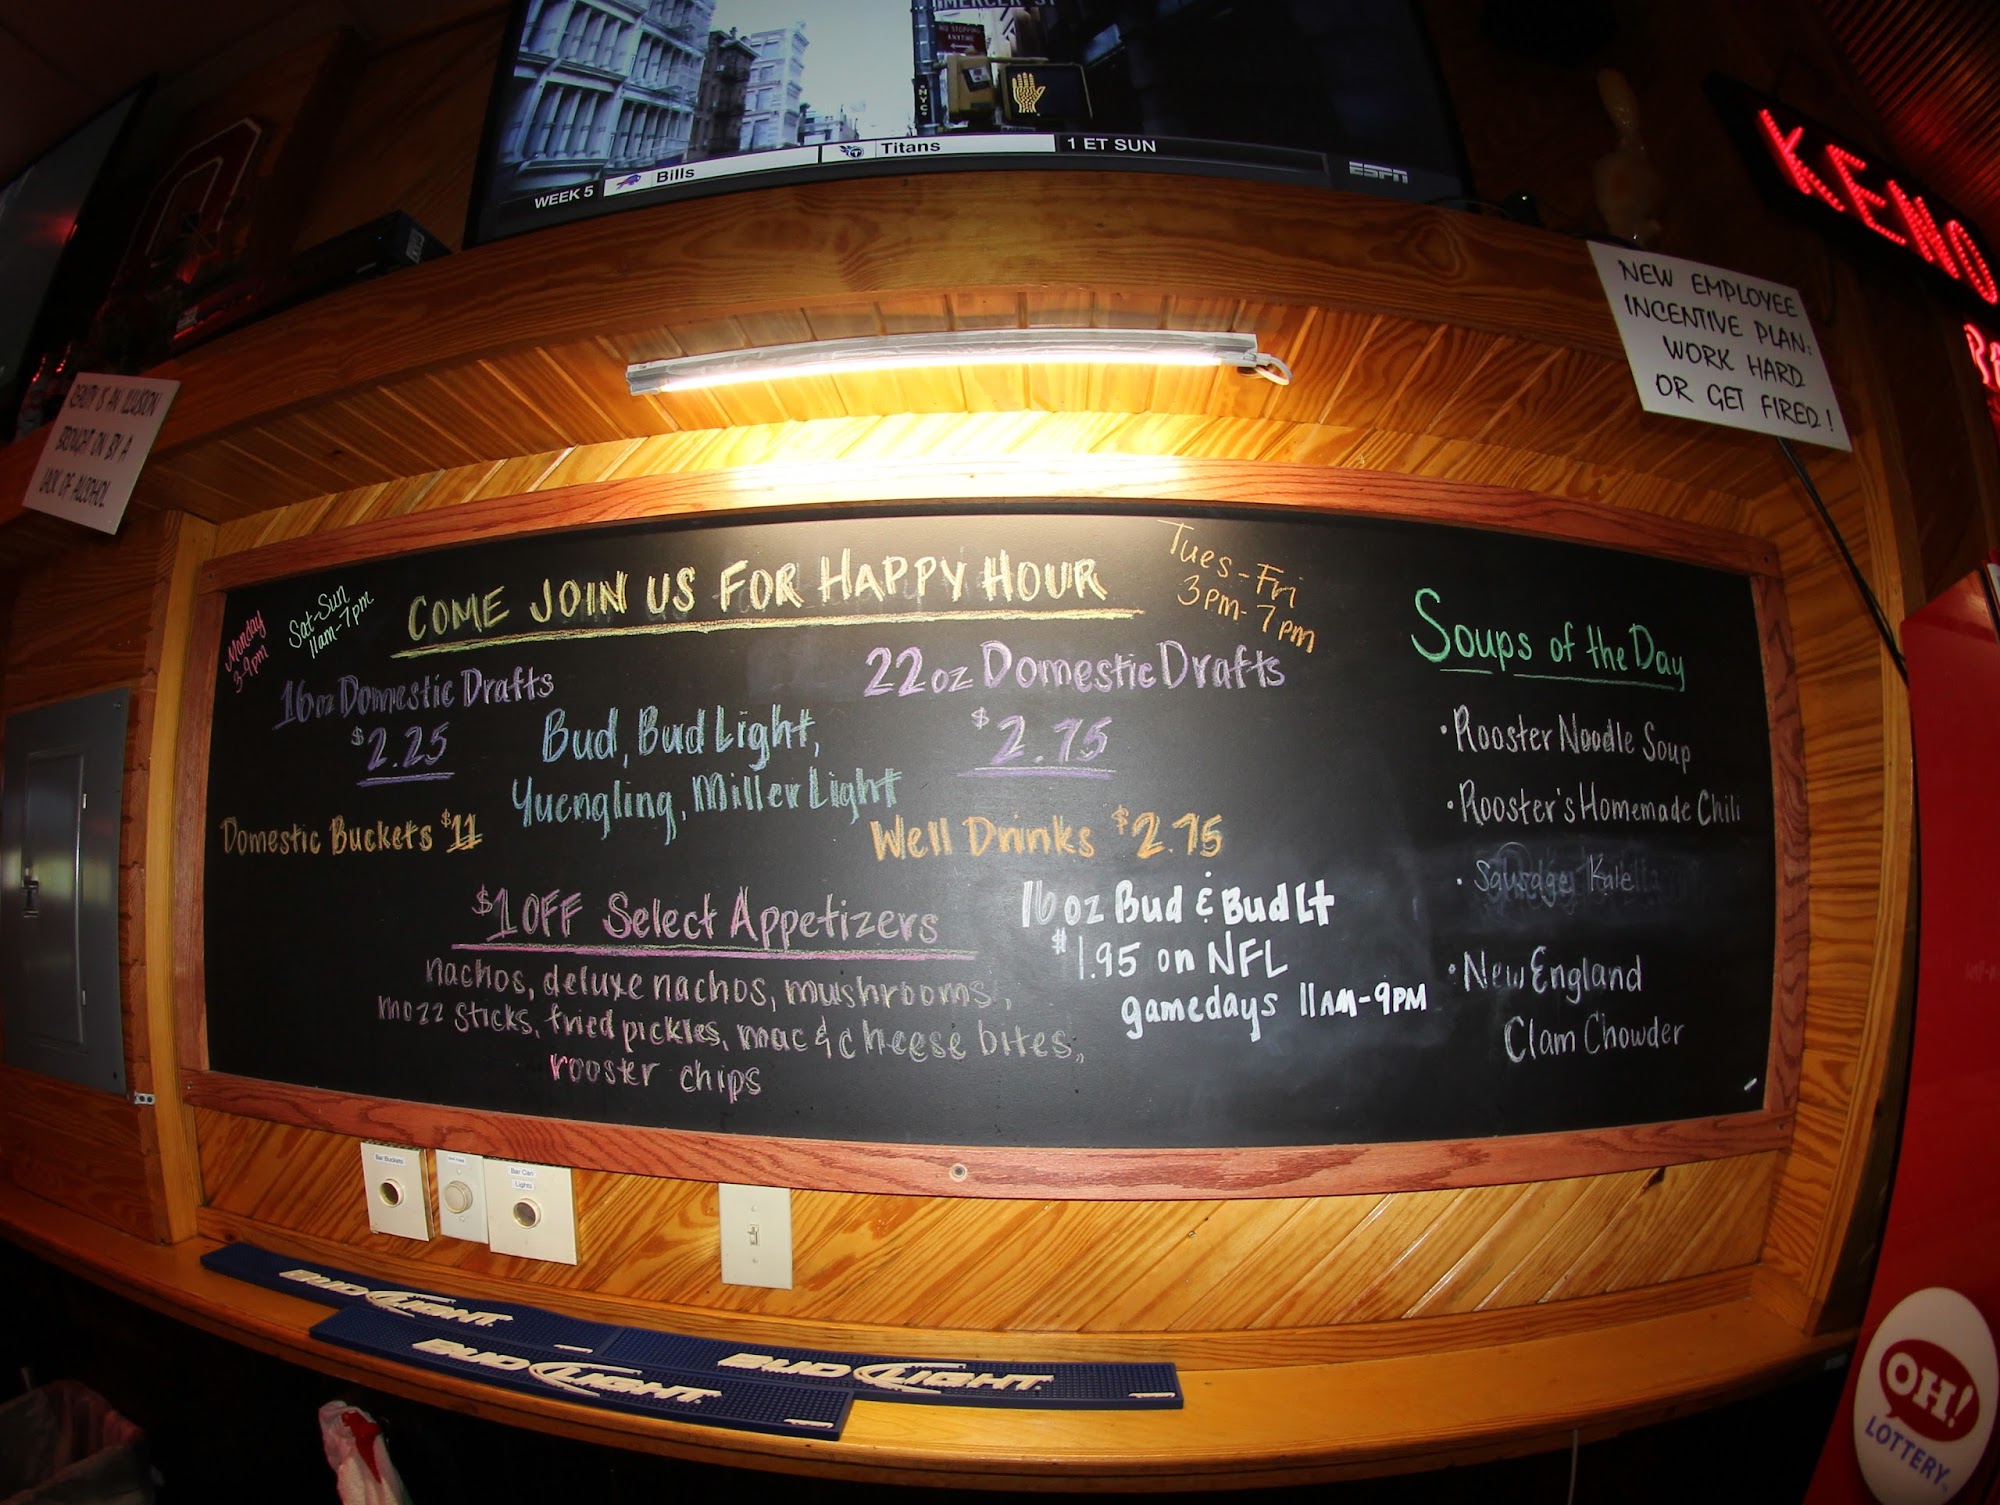 MERCER ST
NO STOPPING
ANYTIME
NYC
WEEK 5 Bills Titans 1 ET SUN ESPN
KENO
NEW EMPLOYEE
INCENTIVE PLAN:
WORK HARD
OR GET FIRED!
REALITY IS AN ILLUSION
BROUGHT ON BY A
LACK OF ALCOHOL
Monday
3-9pm
Sat-Sun
11am-7pm
COME JOIN US FOR HAPPY HOUR
Tues-Fri
3pm-7pm
16oz Domestic Drafts
$2.25
Bud, Bud Light,
Yuengling, Miller Light
22oz Domestic Drafts
$2.75
Domestic Buckets $11
Well Drinks $2.75
$1 OFF Select Appetizers
nachos, deluxe nachos, mushrooms,
mozz sticks, fried pickles, mac & cheese bites,
rooster chips
16oz Bud & Bud Lt
$1.95 on NFL
gamedays 11AM-9PM
Soups of the Day
• Rooster Noodle Soup
• Rooster's Homemade Chili
• Kale
• New England
Clam Chowder
Bar Buckets
Bar Can
Lights
BUD LIGHT
BUD LIGHT
BUD LIGHT
OH!
LOTTERY